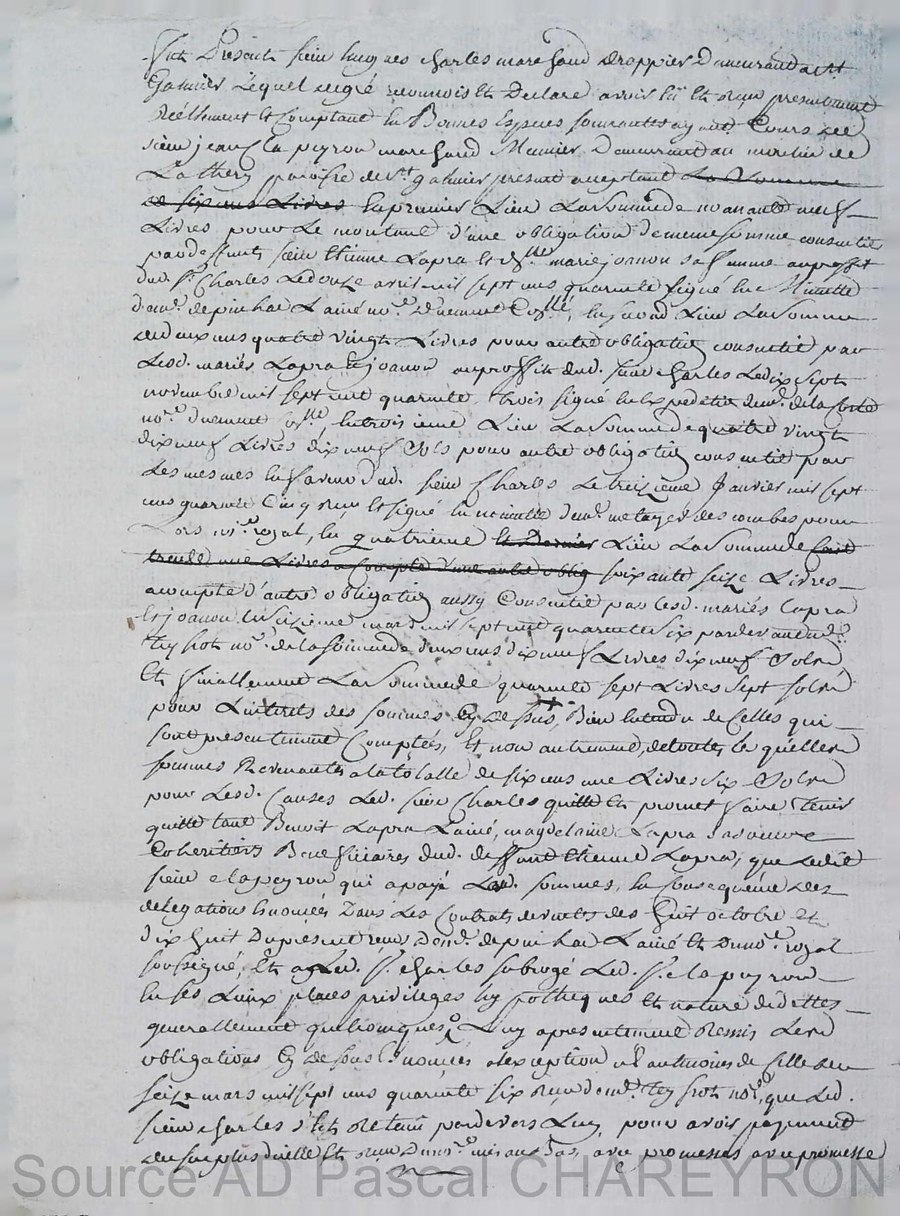 fut Présent sieur hugues charles marchand drappier Demeurant a St
Galmier Lequel de gré reconnois Et Declare avoir Eu Et Reçu presentement
Réellement Et Comptant En Bonnes Especes sonnantes ayant Cours de
sieur jean Clapeyron marchand Meunier Demeurant au moulin de
Lathery paroisse de St galmier present acceptant La Somme
de six cens Livres En premier Lieu La Somme de nonante neuf
Livres pour Le montant d'une obligation de meme somme consentie
par deffunts sieur Etienne Lapra Et marie joanon sa femme au proffit
dud. Sr Charles Le douze avril mil sept cens quarente signé En Minutte
dem. depuinhac L'ainé no.re D'uement Coll.né, En second Lieu La Somme
de deux cens quatre vingt Livres pour autre obligation consentie par
Lesd. mariés Lapra Et joanon au proffit dud. sieur Charles Le dix sept
novembre mil sept cent quarente trois signé En Expedition dem. de la
no.re d'uement, En troisieme Lieu La Somme de quatre vingt
dix neuf Livres dix neuf Sols pour autre obligation consentie par
Les memes En faveur dud. sieur Charles Le treizieme Janvier mil sept
cens quarente Cinq Reçu Et signé En minutte dem. metayer des combes pour
Lors no.re royal, En quatrieme Et Dernier Lieu La Somme de Cent
trente une Livres a Compte d'une autre oblig soixante seize Livres
acompte d'autre obligation aussy Consentie par Lesd. mariés Lapra
Et joanon Le seizieme mars mil sept cent quarente six par devant
no.re de la somme de deux cens dix neuf Livres dix neuf Sols
Et finallement La Somme de quarente sept Livres sept sols
pour Linterets des sommes Cy Dessus, Bien Entendu de Celles qui
sont presentement Comptées, Et non autrement, de toutes Les quelles
sommes Revenantes a la totalle de six cens une Livres six Sols
pour Lesd. Causes Led. sieur Charles quitte Et promet faire tenir
quitte tant Benoit Lapra L'ainé, magdelaine Lapra sa
Coheritiers Beneffiiciaires dud. deffunt Etienne Lapra, que Ledit
sieur Clapeyron qui a payé Lesd. sommes, En Consequence des
delegations Enoncées Dans Les Contrats de ventes des huit octobre Et
dix huit Du present reçus Dem. depuinhac L'ainé Et du no.re royal
soussigné, Et a Led. Sr. Charles subrogé Led. Sr. Clapeyron
En ses Lieux places privileges hypotheques Et nature de dettes
generallement quelconques, Luy a presentement Remis Lesd
obligations Cy Dessus Enoncées a lexception neantmoins de Celle du
seize mars mil sept cens quarente six Reçu dem. no.re, que Led.
sieur Charles s'Est Retenu par devers Luy, pour avoir payement
du surplus d'icelle Et avec promesse
Source AD Pascal CHAREYRON